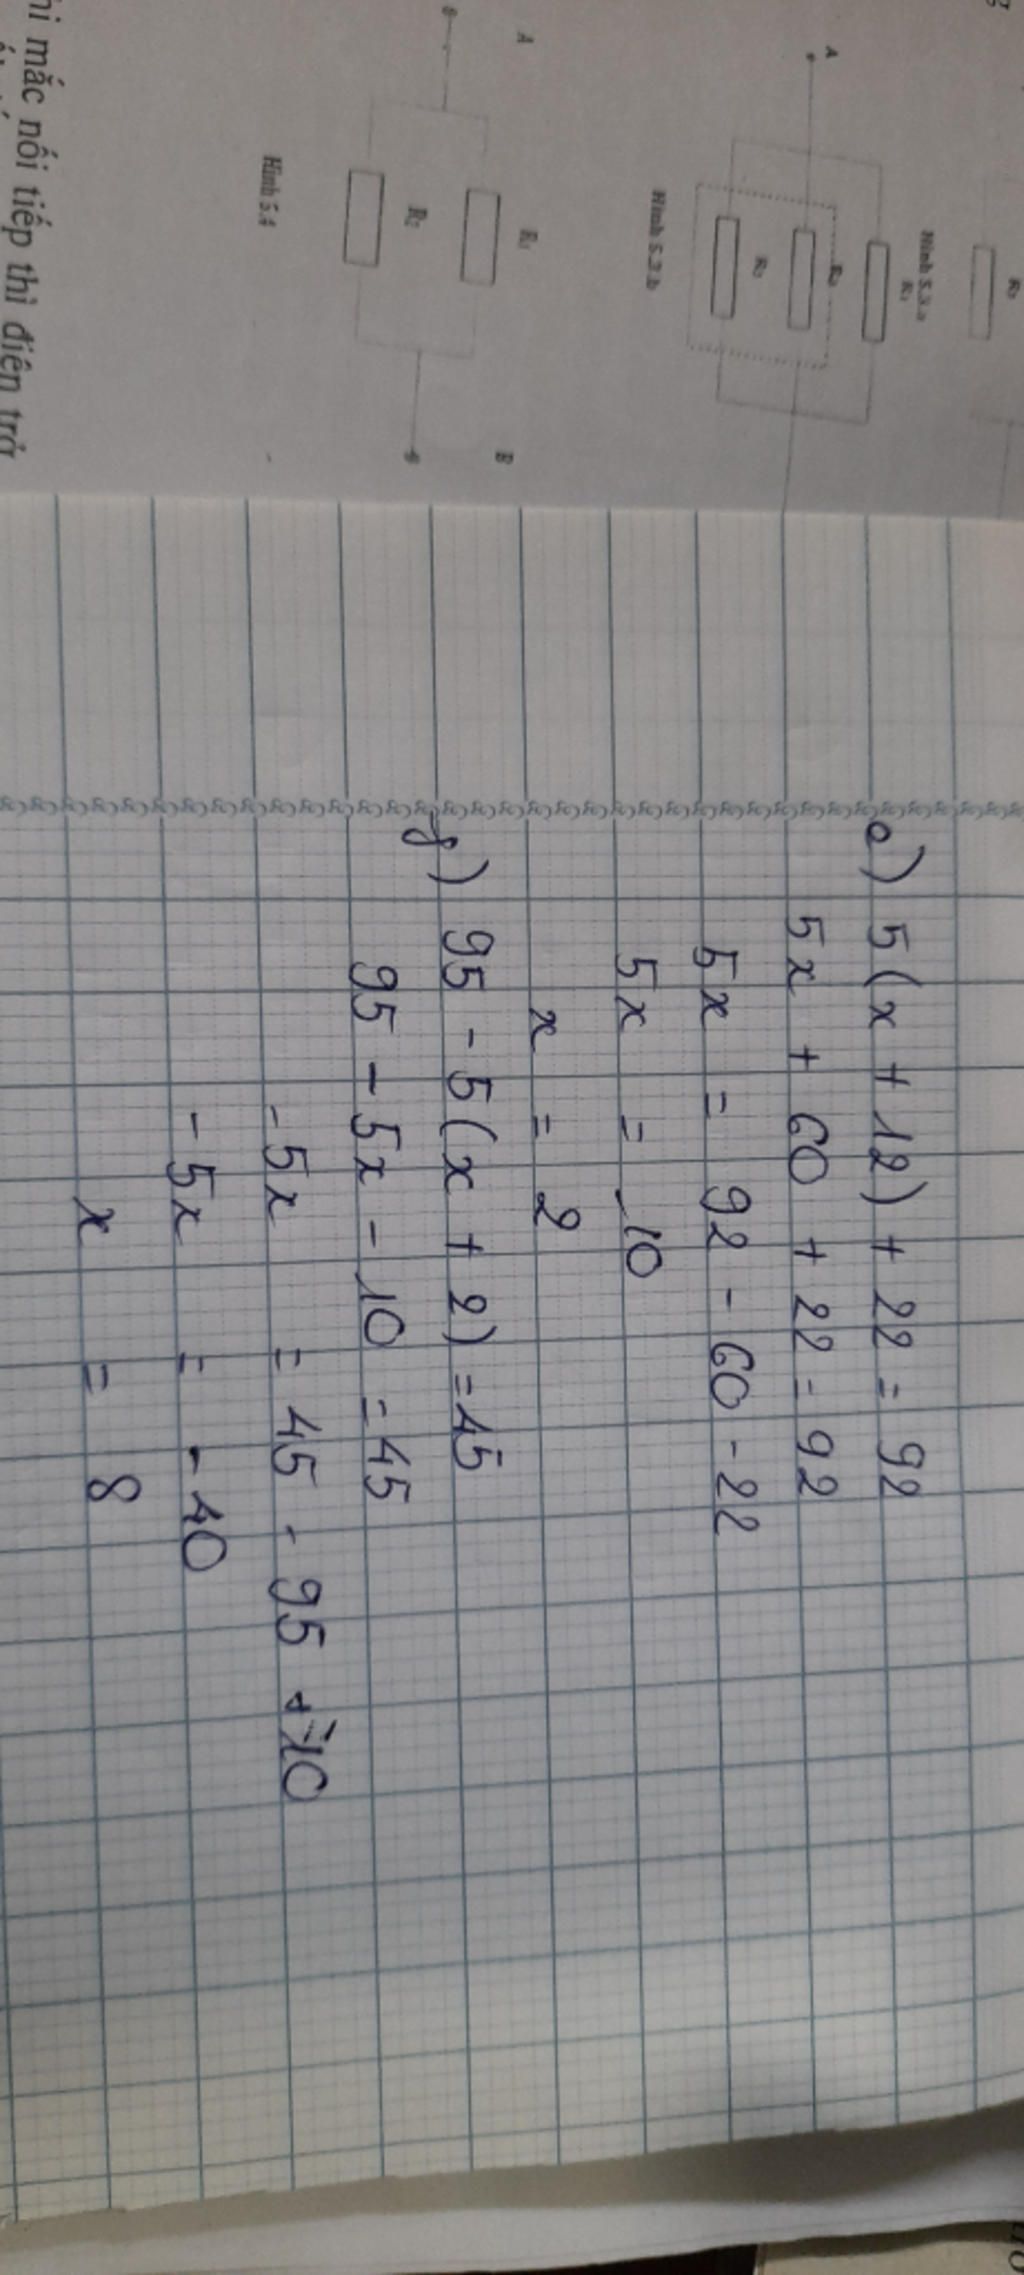 e) 5(x + 12) + 22 = 92
5x + 60 + 22 = 92
5x = 92 - 60 - 22
5x = 10
x = 2
f) 95 - 5(x + 2) = 45
95 - 5x - 10 = 45
-5x = 45 - 95 + 10
-5x = -40
x = 8
R₃
Hình 5.3.a
R₁
A
R₂
R₃
Hình 5.3.b
A
R₁
B
R₂
Hình 5.4
mắc nối tiếp thì điện trở